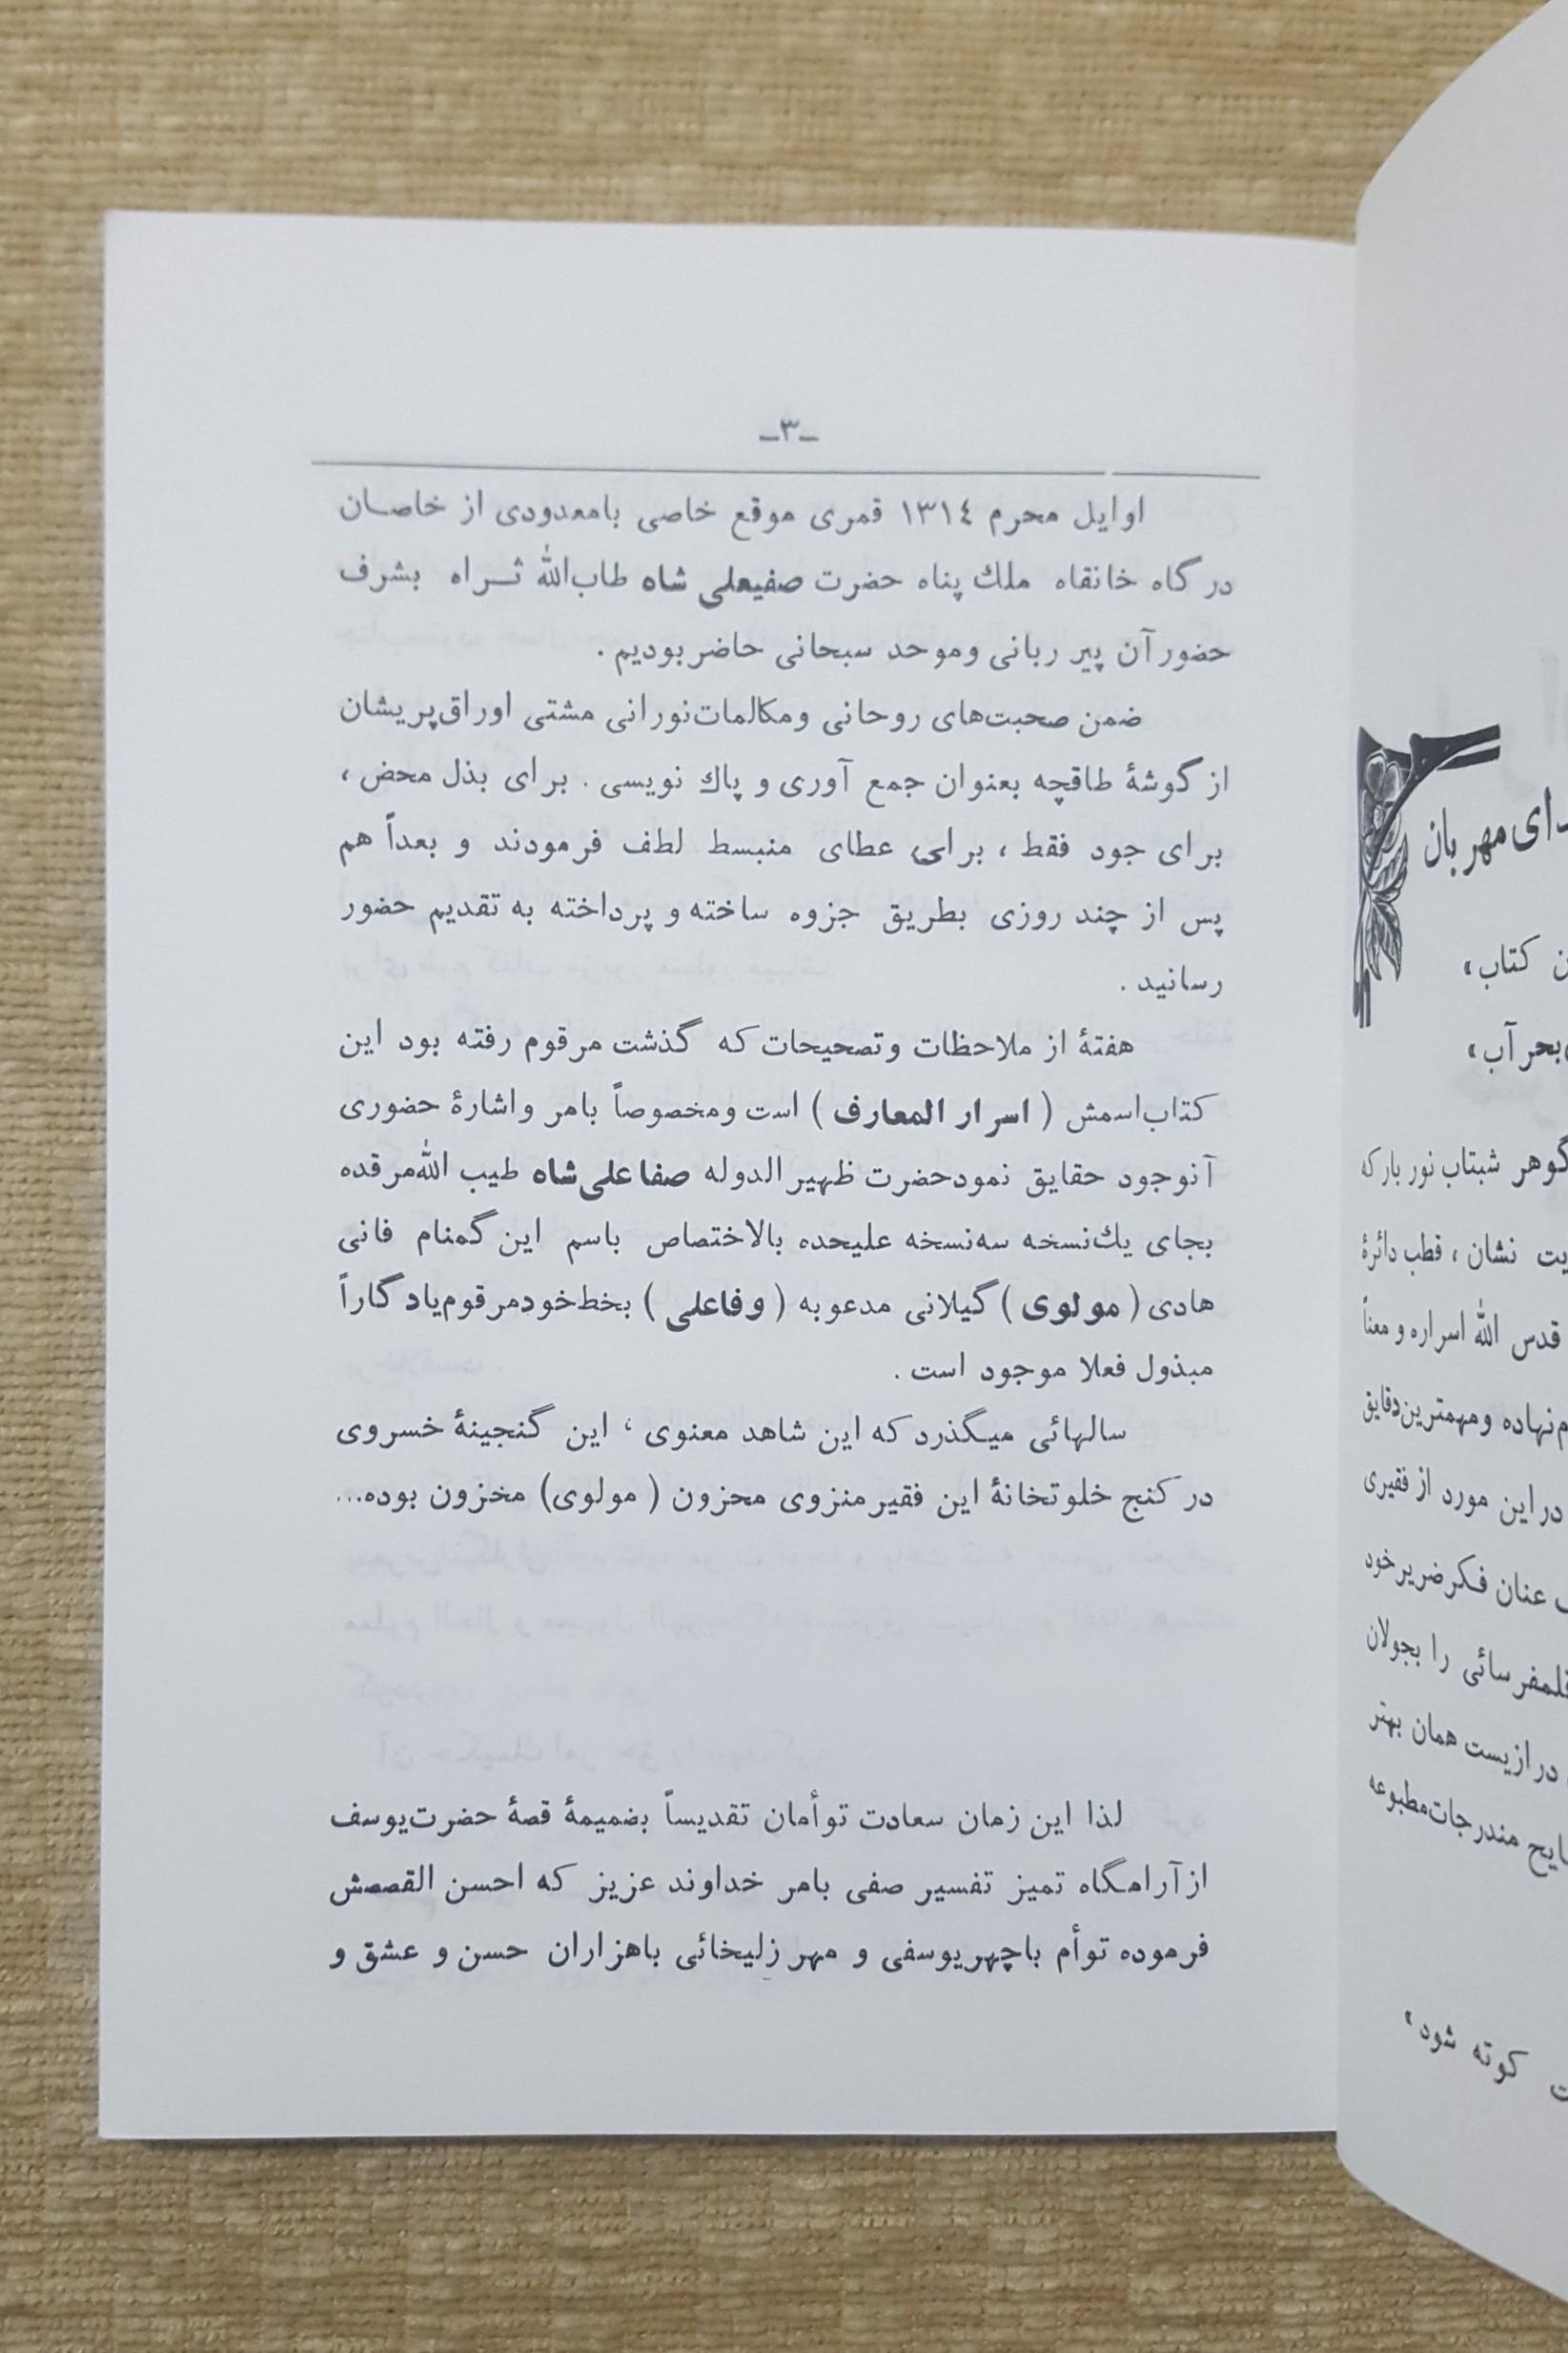 ـ۳ـ
اوایل محرم ۱۳۱٤ قمری موقع خاصی بامعدودی از خاصـان
درگاه خانقاه ملك پناه حضرت صفیعلی شاه طاب‌الله ثـراه بشرف
حضورآن پیر ربانی وموحد سبحانی حاضربودیم .
ضمن صحبت‌های روحانی ومکالمات‌نورانی مشتی اوراق‌پریشان
ازگوشهٔ طاقچه بعنوان جمع آوری و پاك نویسی . برای بذل محض ،
برای جود فقط ، برای عطای منبسط لطف فرمودند و بعداً هم
پس از چند روزی بطریق جزوه ساخته و پرداخته به تقدیم حضور
رسانید .
هفتهٔ از ملاحظات وتصحیحات که گذشت مرقوم رفته بود این
کتاب‌اسمش ( اسرار المعارف ) است ومخصوصاً بامر واشارهٔ حضوری
آنوجود حقایق نمودحضرت ظهیرالدوله صفاعلی‌شاه طیب الله‌مرقده
بجای یك‌نسخه سه‌نسخه علیحده بالاختصاص باسم این گمنام فانی
هادی ( مولوی ) گیلانی مدعوبه ( وفاعلی ) بخط‌خودمرقوم‌یادگاراً
مبذول فعلا موجود است .
سالهائی میگذرد که این شاهد معنوی ، این گنجینهٔ خسروی
درکنج خلوتخانهٔ این فقیرمنزوی محزون ( مولوی) مخزون بوده...
لذا این زمان سعادت توأمان تقدیساً بضمیمهٔ قصهٔ حضرت‌یوسف
ازآرامگاه تمیز تفسیر صفی بامر خداوند عزیز که احسن القصصش
فرموده توأم باچهریوسفی و مهر زلیخائی باهزاران حسن و عشق و
مهربان
کتاب»
بحرآب»
گوهر شبتاب نوربارکه
نشان ، قطب دائرهٔ
قدس الله اسراره و معناً
نهاده ومهمترین‌دقایق
دراین مورد از فقیری
عنان فکرضریرخود
قلمفرسائی را بجولان
درازیست همان بهتر
مندرجات‌مطبوعه
کوته شود»